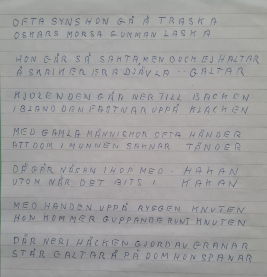 OFTA SYNS HON GÅ Å TRASKA
OSKARS MORSA GUMMAN LASKA
HON GÅR SÅ SAKTA, MEN DOCK EJ HALTAR
Å SKRIKER BRA DJÄVLA -- GALTAR
KJOLEN DEN GÅR NER TILL BACKEN
IBLAND DEN FASTNAR UPPÅ KLACKEN
MED GAMLA MÄNNISKOR OFTA HÄNDER
ATT DOM I MUNNEN SAKNAR TÄNDER
DÅ GÅR NÄSAN IHOP MED - HAKAN
UTOM NÄR DET BITS I KAKAN
MED HANDEN UPPÅ RYGGEN KNUTEN
HON KOMMER GUPPANDE RUNT KNUTEN
DÄR NERI HÄCKEN GJORD AV GRANAR
STÅR GALTAR Å PÅ DOM HON SPANAR